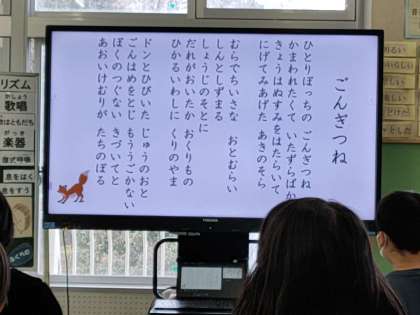 ごんぎつね
ひとりぼっちの ごんぎつね
かまわれたくて いたずらばか
きょうはぬすみをはたらいて
にげてみあげた あきのそら
むらでちいさな おとむらい
しんとしずまる
しょうじのそとに
だれがおいたか おくりもの
ひかるいわしに くりのやま
ドンとひびいた じゅうのおと
ごんはめをとじ もううごかない
ぼくのつぐない きづいてと
あおいけむりが たちのぼる
リズム
かしょう
歌唱
はともだち
がっき
楽器
息をはく
息をすう